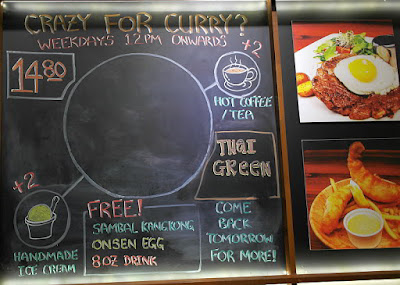 CRAZY FOR CURRY?
WEEKDAYS 12PM ONWARDS
14.80
+2
HOT COFFEE
/TEA
THAI
GREEN
+2
HANDMADE
ICE CREAM
FREE!
SAMBAL KANGKONG
ONSEN EGG
8 OZ DRINK
COME
BACK
TOMORROW
FOR MORE!